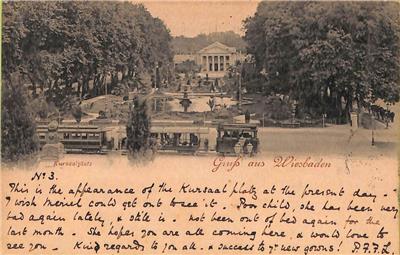 Kursaalplatz
Gruß aus Wiesbaden
No 3.
This is the appearance of the Kursaal platz at the present day
I wish Meriel could get out to see it. Poor child, she has been very
bad again lately, & still is. not been out of bed again for the
last month. She hopes you are all coming here, & would love to
see you. Kind regards to you all. & success to yr new gowns!